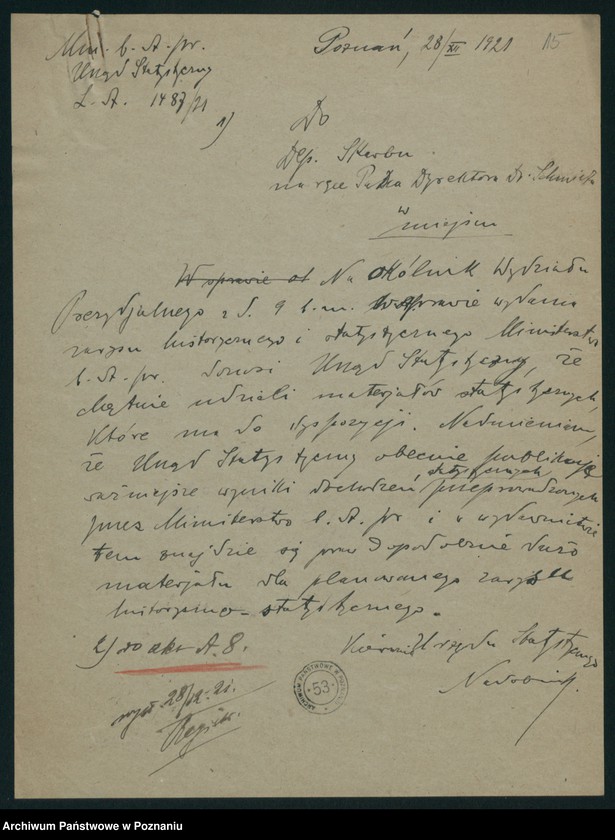 Min. b. dz. pr.
Urząd Statystyczny
L. A. 1487/21
Poznań, 28/XII 1921
15
1)
Do
Dep. Skarbu.
na ręce Pana Dyrektora Dr.
w
miejscu
W sprawie Na okólnik Wydziału
Prezydjalnego z d. 9 b.m. w sprawie wydania
zarysu historycznego i statystycznego Ministerstwa
b. dz. pr. donosi Urząd Statystyczny, że
chętnie udzieli materjałów statystycznych,
które ma do dyspozycji. Nadmieniam,
że Urząd Statystyczny obecnie publikuje
ważniejsze wyniki dochodzeń statystycznych przeprowadzonych
przez Ministerstwo b. dz. pr. i w wydawnictwie
tem znajdzie się prawdopodobnie dużo
materjału dla planowanego zarysu
historyczno-statystycznego.
2) do akt A.8.
Kierownik Urzędu Statystycznego
28/12.21.
ARCHIWUM PAŃSTWOWE W POZNANIU
53
Archiwum Państwowe w Poznaniu